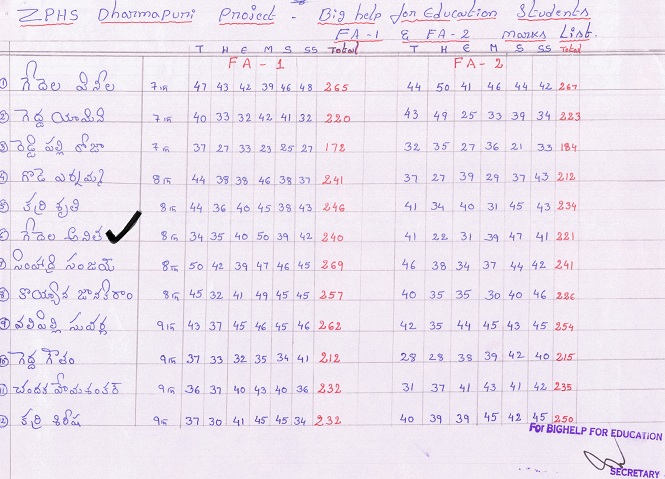 ZPHS Dharmapuri Project - Big help for Education Students
FA-1 & FA-2 marks List.
T H E M S SS Total T H E M S SS Total
FA-1 FA-2
① గేదెల వినీల 7th 47 43 42 39 46 48 265 44 50 41 46 44 42 267
② గెడ్డ యామిని 7th 40 33 32 42 41 32 220 43 49 25 33 39 34 223
③ రెడ్డిపల్లి రోజా 7th 37 27 33 23 25 27 172 32 35 27 36 21 33 184
④ గొడె 8th 44 38 38 46 38 37 241 37 27 39 29 37 43 212
⑤ కర్రి శృతి 8th 44 36 40 45 38 43 246 41 34 40 31 45 43 234
⑥ గేదెల అనిత 8th 34 35 40 50 39 42 240 41 22 31 39 47 41 221
⑦ సింహాద్రి సంజయ్ 8th 50 42 39 47 46 45 269 46 38 34 37 44 42 241
⑧ కొయ్యాన జానకిరాం 8th 45 32 41 49 45 45 257 40 35 35 30 40 46 226
⑨ వలిపల్లి సువర్ణ 9th 43 37 45 46 45 46 262 42 35 44 45 43 45 254
⑩ గెడ్డ గౌతం 9th 37 33 32 35 34 41 212 28 28 38 39 42 40 215
⑪ చందక హేమశంకర్ 9th 36 37 40 43 40 36 232 31 37 41 43 41 42 235
⑫ కర్రి శిరీష 9th 37 30 41 45 45 34 232 40 39 39 45 42 45 250
For BIGHELP FOR EDUCATION
SECRETARY